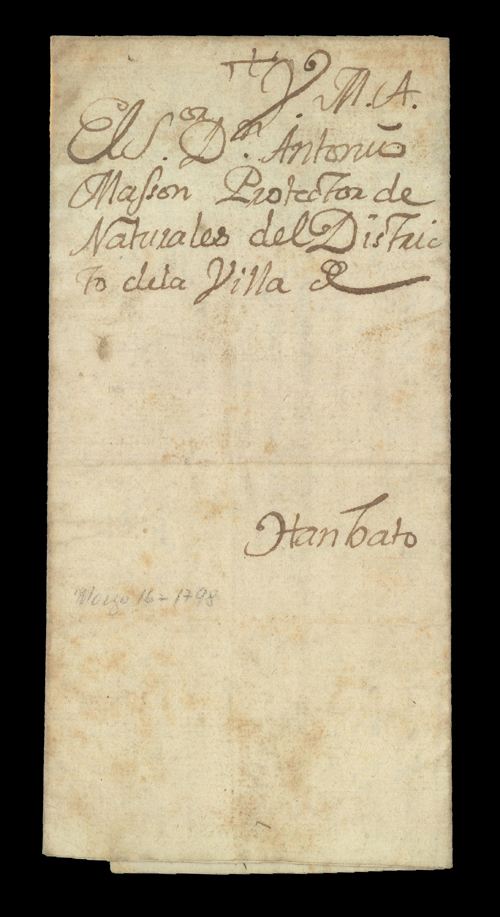 Y. M. A.
El S.or D.n Antonio
Masson Protector de
Naturales del Distric
to dela Villa de
Hanbato
Marzo 16 - 1798